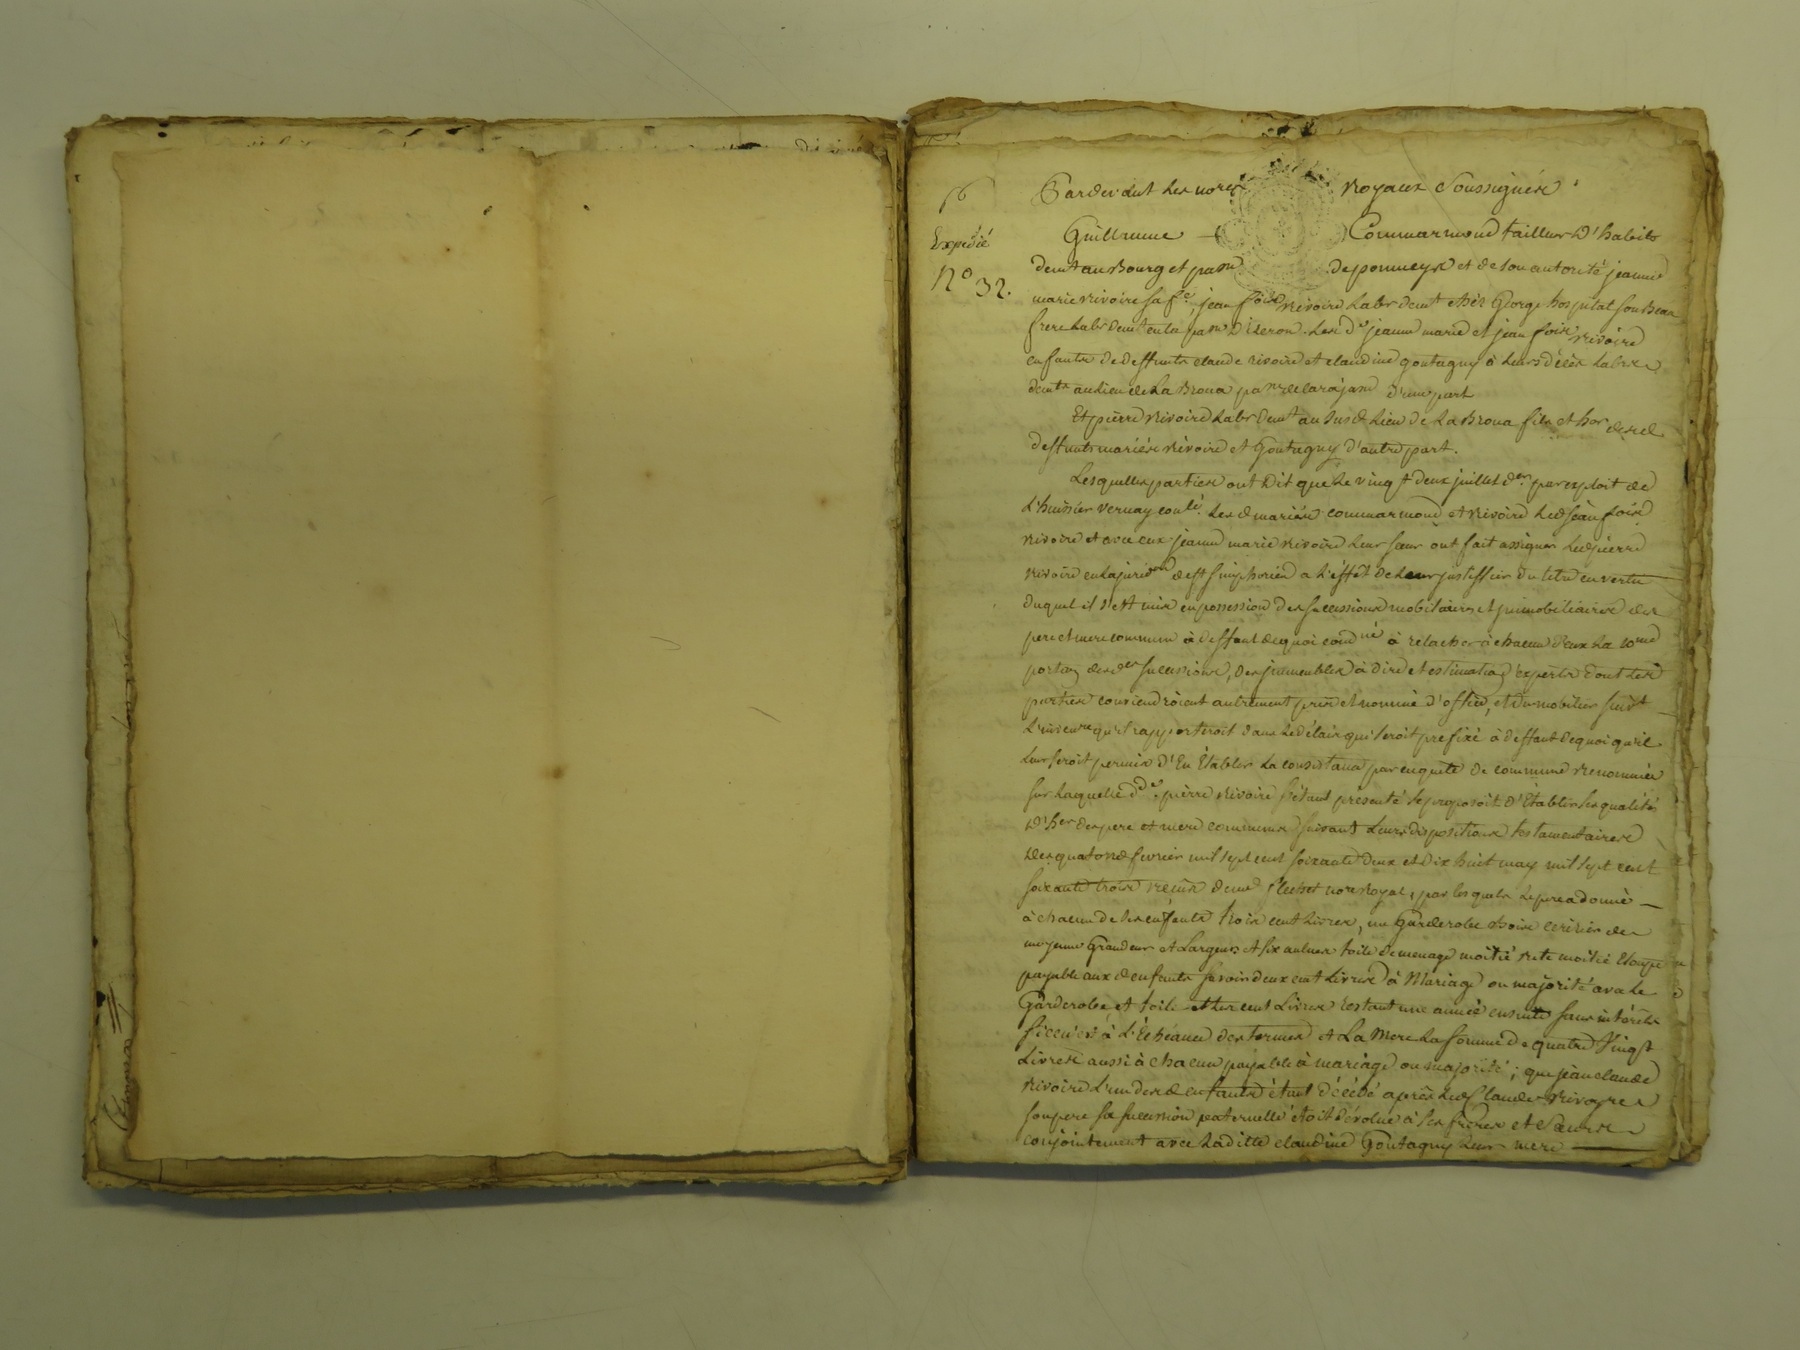 Expedié
N° 32.
Pardevant les nores royaux soussignés
Guillaume Commarmond tailleur d'habits
demt au Bourg et parse de pomeys et de son autorité jeanne
marie rivoire sa fe, jean fois rivoire labr demt chés George hospital son Beau
frere labr demt en la parse d'izeron. Lesd. jeanne marie et jean fois rivoire
enfants de deffunts claude rivoire et claudine goutagny à leurs décès labrs
demts au lieu de La Broua parse de larajasse d'une part
Et pierre rivoire labr demt au susd. lieu de La Broua fils et her desd.
deffunts mariés rivoire et Goutagny d'autre part.
Lesquelles parties ont dit que le vingt deux juillet der par exploit de
l'huissier vernay conlé. les d. mariés commarmond et rivoire led jean fois
rivoire et avec eux jeanne marie rivoire leur sœur ont fait assigner led pierre
rivoire en la juridon de st simphorien a l'effet de leur justiffier du titre en vertu
duquel il s'est mis en possession des successions mobiliaires et immobiliaires des
pere et mere communs à deffaut de quoi condné à relacher à chacun d'eux la
portion desdes successions, des immeubles à dire et estimation d'experts dont les
parties conviendroient autrement pris et nommé d'office, et du mobilier suivt
l'inventre qu'il rapporteroit dans le délai qui seroit prefixé à deffaut de quoi qu'il
leur seroit permis d'En Etablir la consistance par enquete de commune renommée
sur laquelle dde. pierre rivoire s'étant présenté se proposoit d'Etablir ses qualités
d'her des pere et mere communs suivant leurs dispositions testamentaires
des quatorze fevrier mil sept cent soixante deux et dix huit may mil sept cent
soixante trois reçus de me flechet nore royal, par lesquels le pere a donné
à chacun de ses enfants trois cent livres, une Garderobe bois cerisier de
moyenne Grandeur et Largeur et six aulnes toile de menage moitié rite moitié Etoupe
payable aux d. enfants sçavoir deux cent livres à Mariage ou majorité avec le
Garderobe et toile et les cent livres restant une année ensuite sans intérêts
si ce n'est à l'Echéance des termes et La Mere la somme de quatre Vingt
Livres aussi à chacun payable à mariage ou majorité; que jean claude
rivoire l'un desd. enfants étant décédé après led Claude Rivoyre
son pere sa succession paternelle étoit dévolue à ses freres et sœurs
conjointement avec laditte claudine Goutagny leur mere